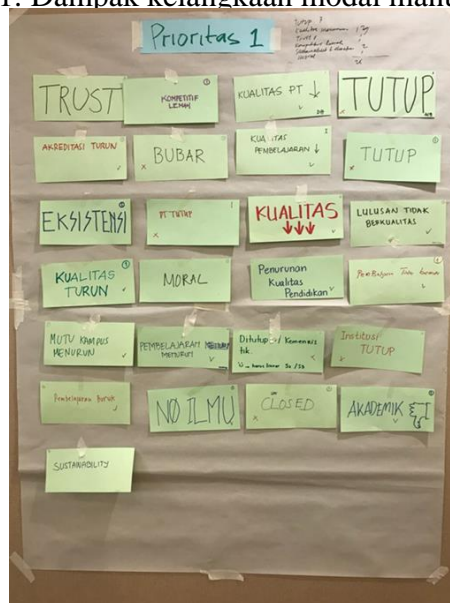 1. Dampak kelangkaan modal manu
Prioritas 1
TUTUP 7
TRUST
KOMPETITIF
LEMAH
KUALITAS PT ↓
TUTUP
AKREDITASI TURUN
BUBAR
KUALITAS
PEMBELAJARAN ↓
TUTUP
EKSISTENSI
PT TUTUP
KUALITAS
↓↓↓
LULUSAN TIDAK
BERKUALITAS
KUALITAS
TURUN
MORAL
Penurunan
Kualitas
Pendidikan
Pembelajaran Tidak
MUTU KAMPUS
MENURUN
PEMBELAJARAN
MENURUN
Ditutup / Kemenris
tik.
Institusi
TUTUP
Pembelajaran buruk
NO ILMU
CLOSED
AKADEMIK
SUSTAINABILITY